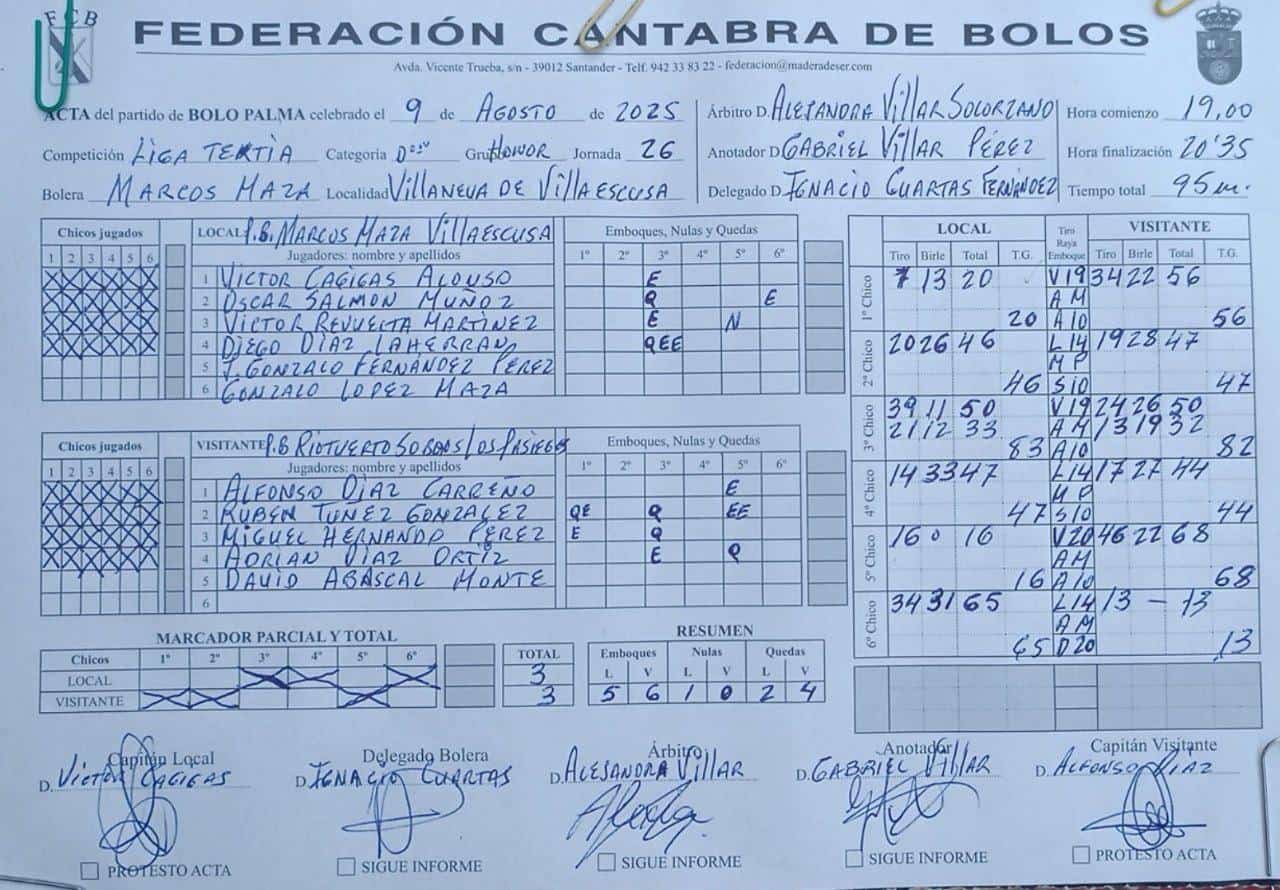 FCB
FEDERACIÓN CANTABRA DE BOLOS
Avda. Vicente Trueba, s/n - 39012 Santander - Telf. 942 33 83 22 - federacion@maderadeser.com
ACTA del partido de BOLO PALMA celebrado el 9 de AGOSTO de 2025 Árbitro D. ALEJANDRA VILLAR SOLORZANO Hora comienzo 19,00
Competición LIGA TERTIA Categoria Grupo HONOR Jornada 26 Anotador D. GABRIEL VILLAR PÉREZ Hora finalización 20'35
Bolera MARCOS MAZA Localidad VILLANEUA DE VILLAESCUSA Delegado D. IGNACIO CUARTAS FERNÁNDEZ Tiempo total 95 m.
Chicos jugados LOCAL P.B. MARCOS MAZA VILLAESCUSA Emboques, Nulas y Quedas
1 2 3 4 5 6 Jugadores: nombre y apellidos 1º 2º 3º 4º 5º 6º
1 VICTOR CAGIGAS ALONSO E
2 OSCAR SALMON MUÑOZ Q E
3 VICTOR REVUELTA MARTINEZ E N
4 DIEGO DIAZ LAHERRAN QEE
5 J. GONZALO FERNÁNDEZ PEREZ
6 GONZALO LOPEZ MAZA
Chicos jugados VISITANTE P.B RIOTUERTO SOBAOS LOS PASIEGOS Emboques, Nulas y Quedas
1 2 3 4 5 6 Jugadores: nombre y apellidos 1º 2º 3º 4º 5º 6º
1 ALFONSO DIAZ CARREÑO E
2 RUBEN TUÑEZ GONZALEZ QE Q EE
3 MIGUEL HERNANDO PEREZ E Q
4 ADRIAN DIAZ ORTIZ E Q
5 DAVID ABASCAL MONTE
6
LOCAL Tiro Raya Emboque VISITANTE
Tiro Birle Total T.G. Tiro Birle Total T.G.
1º Chico 7 13 20 V19 34 22 56
AM
20 A10 56
2º Chico 20 26 46 L14 19 28 47
MP
46 S10 47
3º Chico 39 11 50 V19 24 26 50
21 12 33 AM 13 19 32
83 A10 82
4º Chico 14 33 47 L14 17 27 44
MP
47 S10 44
5º Chico 16 0 16 V20 46 22 68
AM
16 A10 68
6º Chico 34 31 65 L14 13 - 13
AM
65 D20 13
MARCADOR PARCIAL Y TOTAL
Chicos 1º 2º 3º 4º 5º 6º TOTAL
LOCAL 3
VISITANTE 3
RESUMEN
Emboques Nulas Quedas
L V L V L V
5 6 1 0 2 4
Capitán Local Delegado Bolera Árbitro Anotador Capitán Visitante
D. VICTOR CAGIGAS D. IGNACIO CUARTAS D. ALEJANDRA VILLAR D. GABRIEL VILLAR D. ALFONSO DIAZ
PROTESTO ACTA SIGUE INFORME SIGUE INFORME SIGUE INFORME PROTESTO ACTA